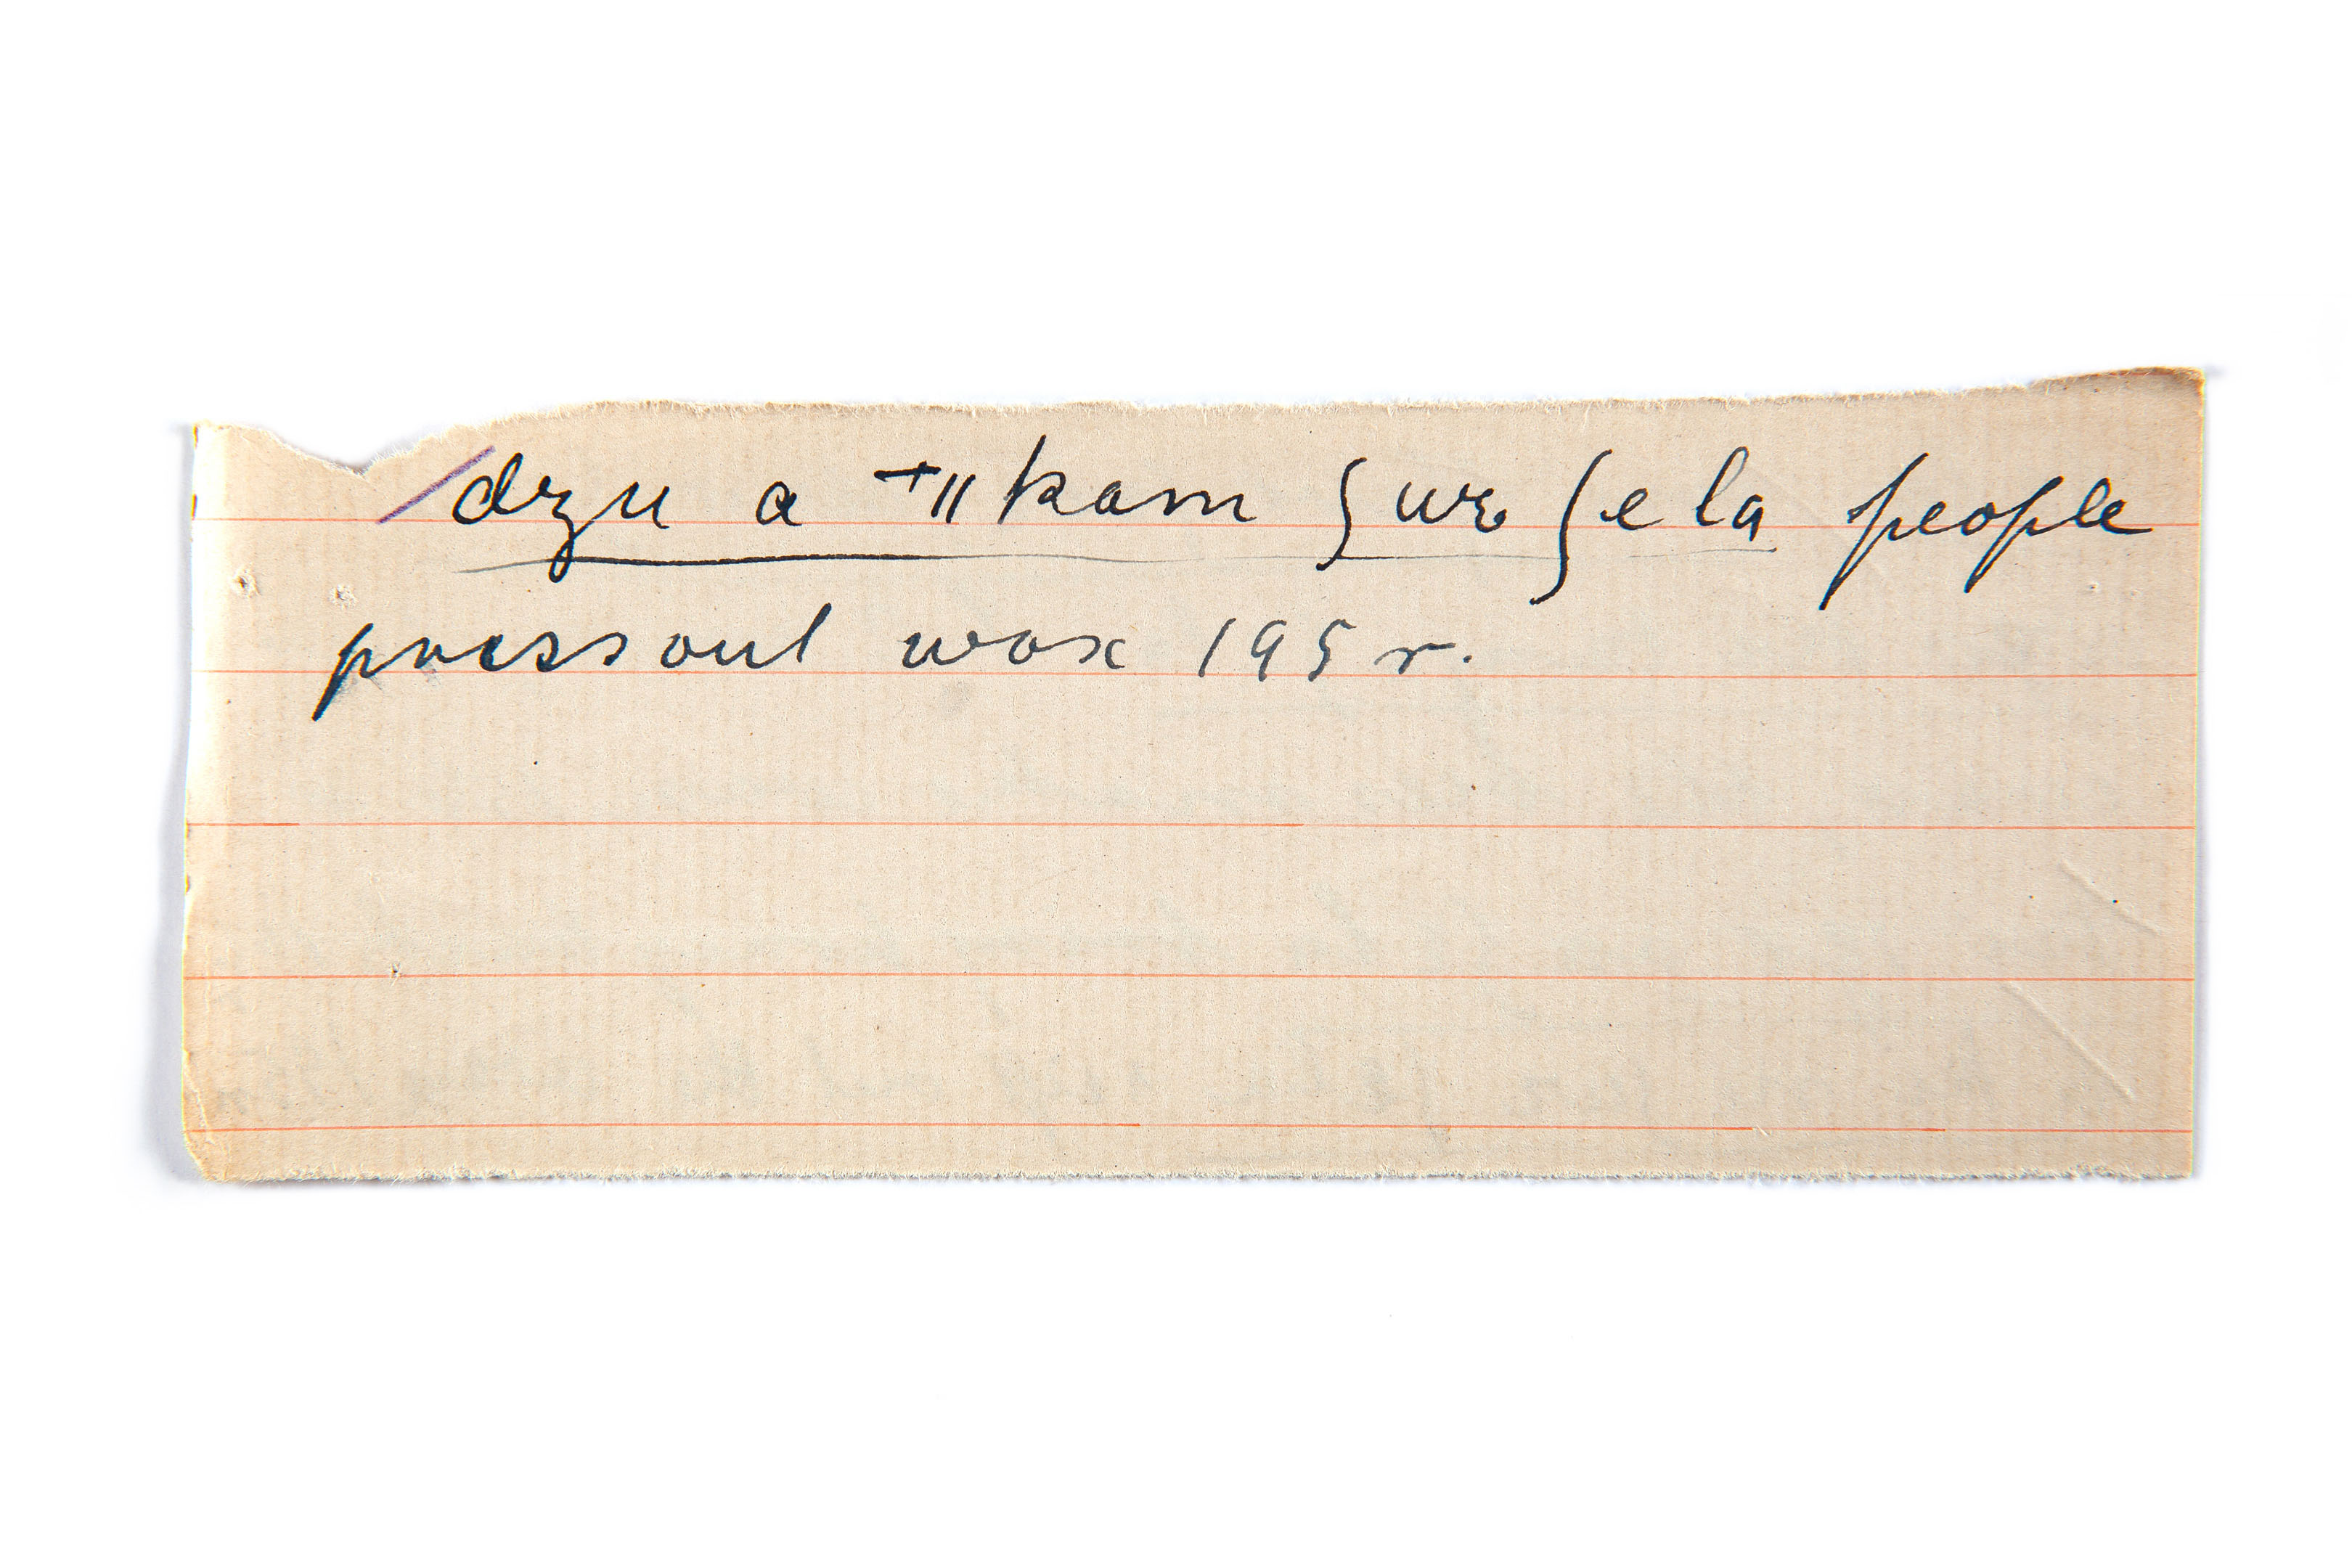 dzu a ⁺ǁkam ʃure ʃe la people
press out wax 195 r.